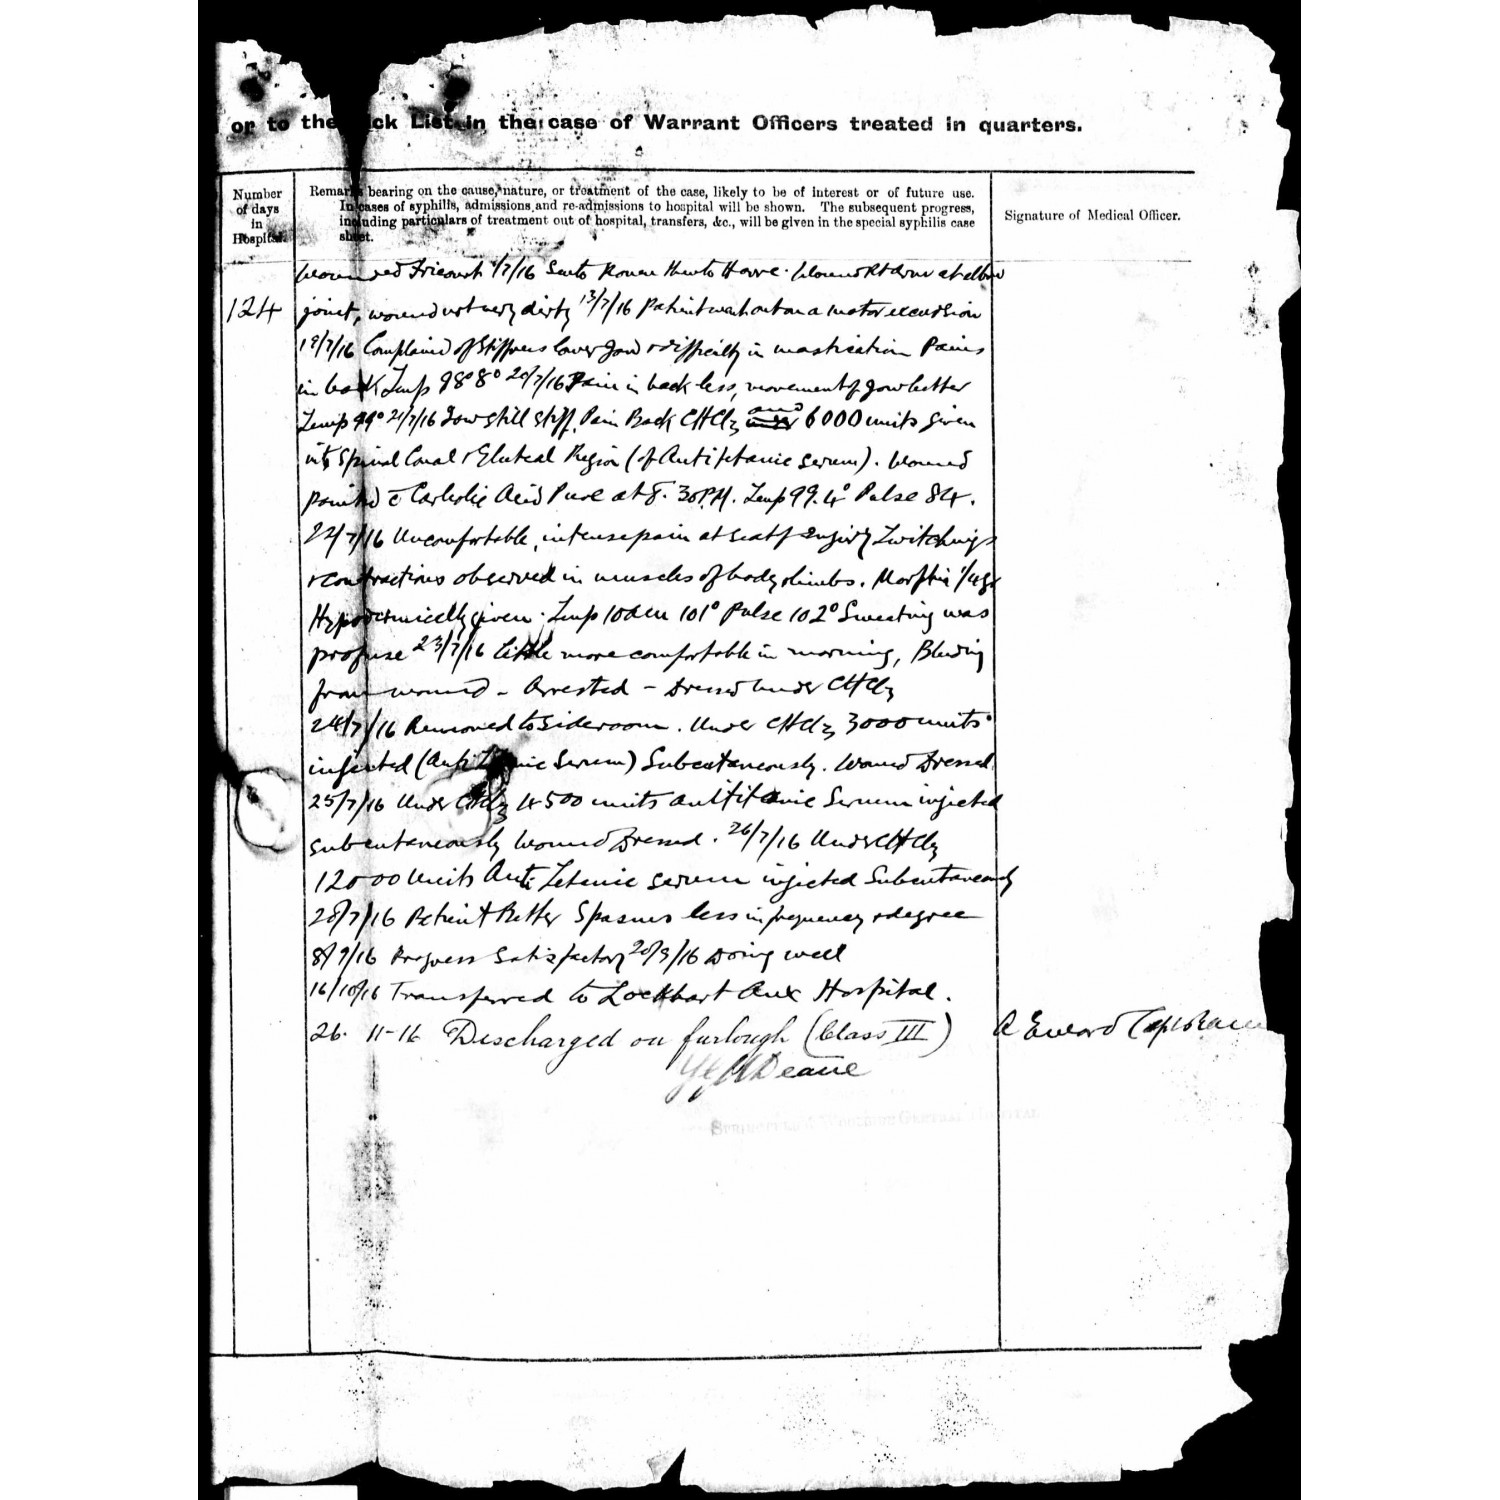 or to the Sick List in the case of Warrant Officers treated in quarters.
Number of days in Hospital.
Remarks bearing on the cause, nature, or treatment of the case, likely to be of interest or of future use.
In cases of syphilis, admissions and re-admissions to hospital will be shown. The subsequent progress,
including particulars of treatment out of hospital, transfers, &c., will be given in the special syphilis case
sheet.
Signature of Medical Officer.
Wounded Fricourt 1/7/16 Sent to Rouen thence to Havre. Wound Rt arm at elbow
124
joint, wound not very dirty 13/7/16 Patient went out on a motor excursion
19/7/16 Complained of Stiffness lower Jaw & difficulty in mastication Pains
in back Temp 98°8° 20/7/16 Pain in back less, movement of jaw better
Temp 99° 21/7/16 Jaw still stiff. Pain Back CHCl3 and 6000 units given
into Spinal Canal & Gluteal Region (of Antitetanic serum). Wound
painted c Carbolic Acid Pure at 8.30 P.M. Temp 99.4° Pulse 84.
22/7/16 Uncomfortable, intense pain at seat of injury Twitchings
& contractions observed in muscles of body & limbs. Morphia 1/4 gr
Hypodermically given. Temp 10 am 101° Pulse 102° Sweating was
profuse 23/7/16 Little more comfortable in morning, Bleeding
from wound - Arrested - Dressed under CHCl3
24/7/16 Removed to sideroom. Under CHCl3 3000 units
injected (Anti Tetanic Serum) Subcutaneously. Wound Dressed
25/7/16 Under CHCl3 4500 units antitetanic Serum injected
subcutaneously Wound Dressed. 26/7/16 Under CHCl3
12000 Units Anti Tetanic serum injected Subcutaneously
28/7/16 Patient Better Spasms less in frequency & degree
8/9/16 Progress Satisfactory 20/9/16 Doing well
16/10/16 Transferred to Lockhart Aux Hospital.
26. 11-16 Discharged on furlough (Class III)
A Edward Capt
Deane
General Hospital